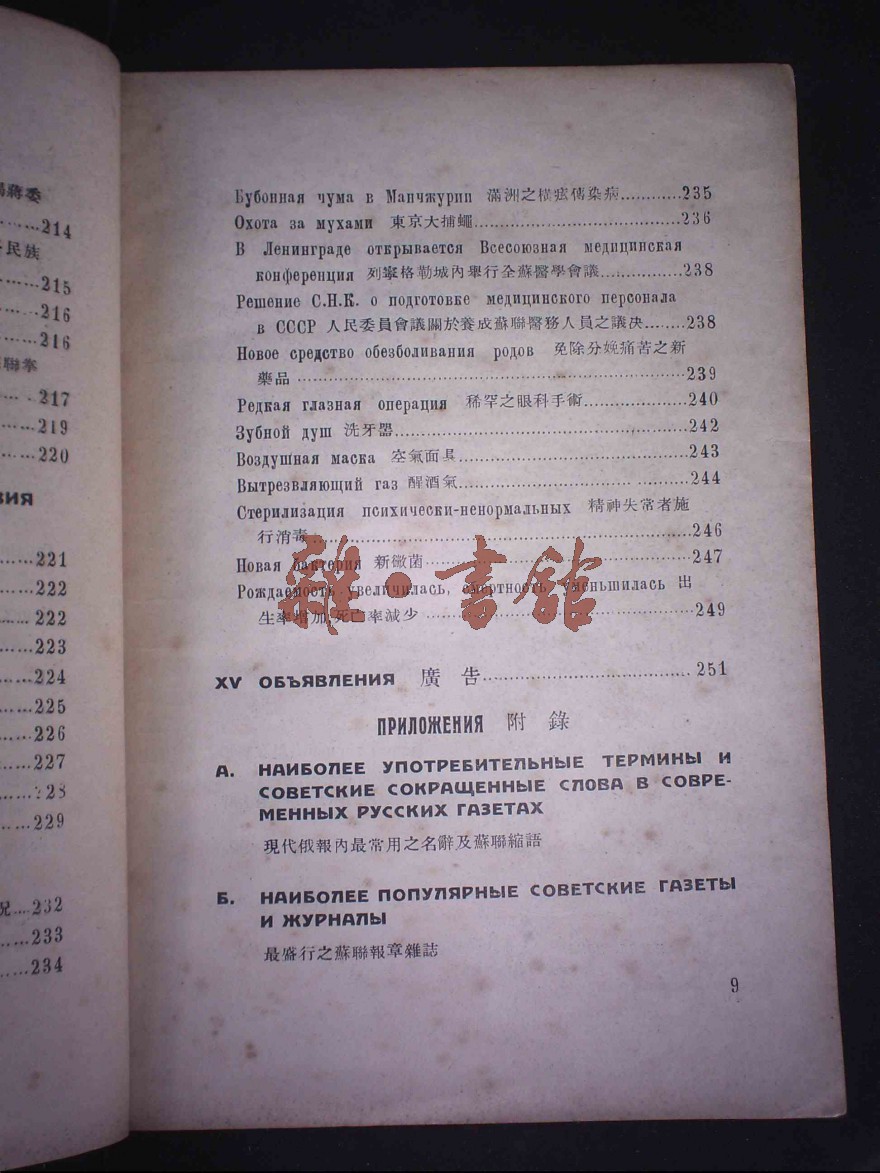 蔣委
214
民族
215
216
216
217
219
220
ВИЯ
221
222
222
223
224
225
226
227
228
229
況....232
233
234
Бубонная чума в Манчжурии 滿洲之橫痃傳染病............235
Охота за мухами 東京大捕蠅............236
В Ленинграде открывается Всесоюзная медицинская
конференция 列寧格勒城內舉行全蘇醫學會議............238
Решение С.Н.К. о подготовке медицинского персонала
в СССР 人民委員會議關於養成蘇聯醫務人員之議決........238
Новое средство обезболивания родов 免除分娩痛苦之新
藥品............239
Редкая глазная операция 稀罕之眼科手術............240
Зубной душ 洗牙器............242
Воздушная маска 空氣面具............243
Вытрезвляющий газ 醒酒氣............244
Стерилизация психически-ненормальных 精神失常者施
行消毒............246
Новая бактерия 新黴菌............247
Рождаемость увеличилась, смертность уменьшилась 出
生率增加,死亡率減少............249
雜·書館
XV ОБЪЯВЛЕНИЯ 廣告............251
ПРИЛОЖЕНИЯ 附錄
А. НАИБОЛЕЕ УПОТРЕБИТЕЛЬНЫЕ ТЕРМИНЫ И
СОВЕТСКИЕ СОКРАЩЕННЫЕ СЛОВА В СОВРЕ-
МЕННЫХ РУССКИХ ГАЗЕТАХ
現代俄報內最常用之名辭及蘇聯縮語
Б. НАИБОЛЕЕ ПОПУЛЯРНЫЕ СОВЕТСКИЕ ГАЗЕТЫ
И ЖУРНАЛЫ
最盛行之蘇聯報章雜誌
9